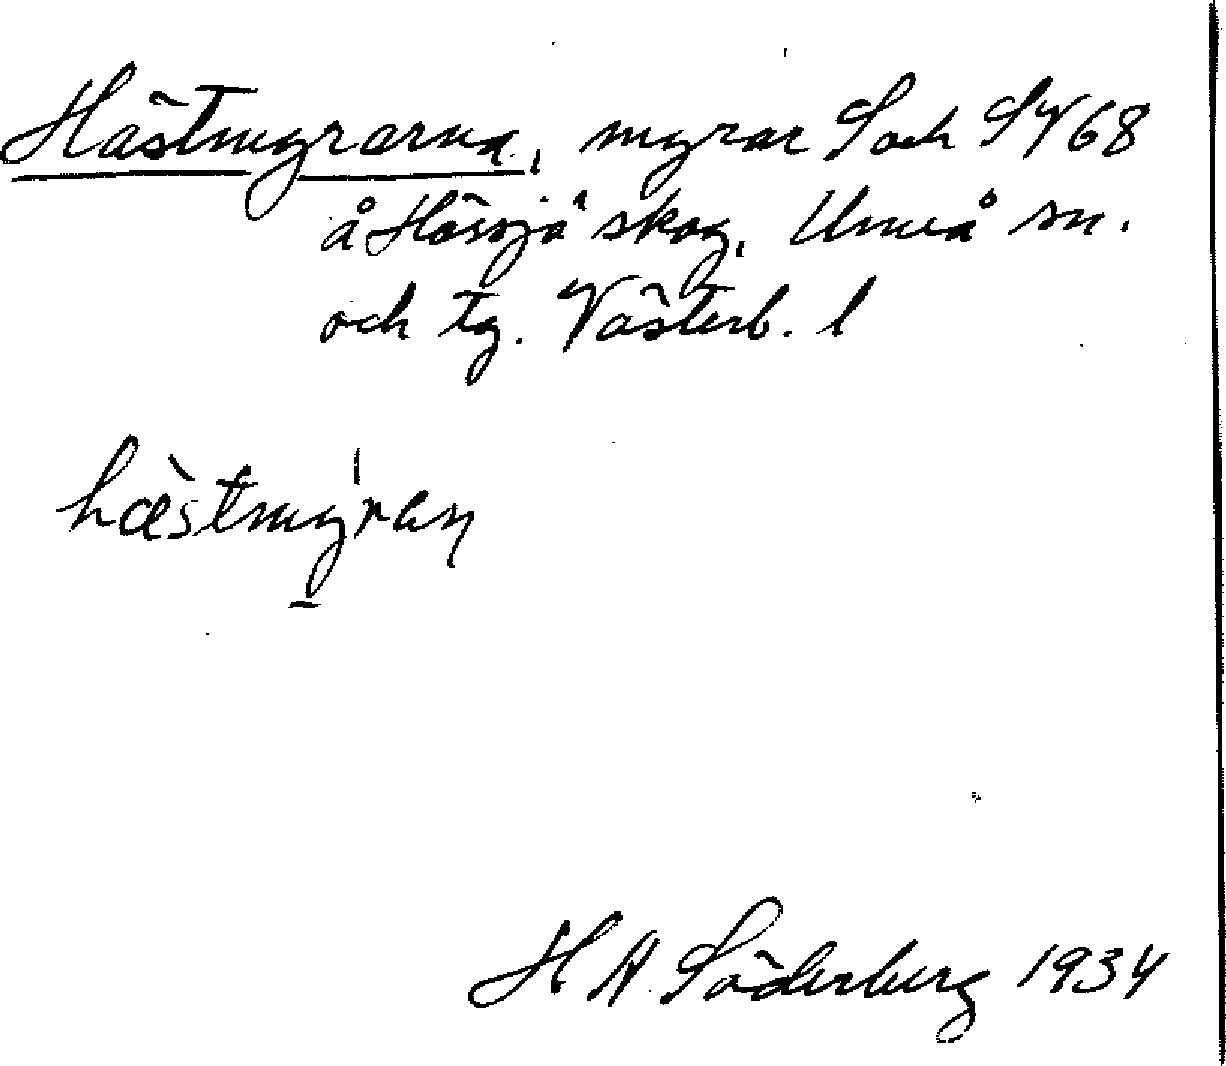 Hästmyrarna, myrar S och SV 68
å Hössjö skog, Umeå sn.
och tg. Västerb. l
hæstmyran
H A Söderberg 1934